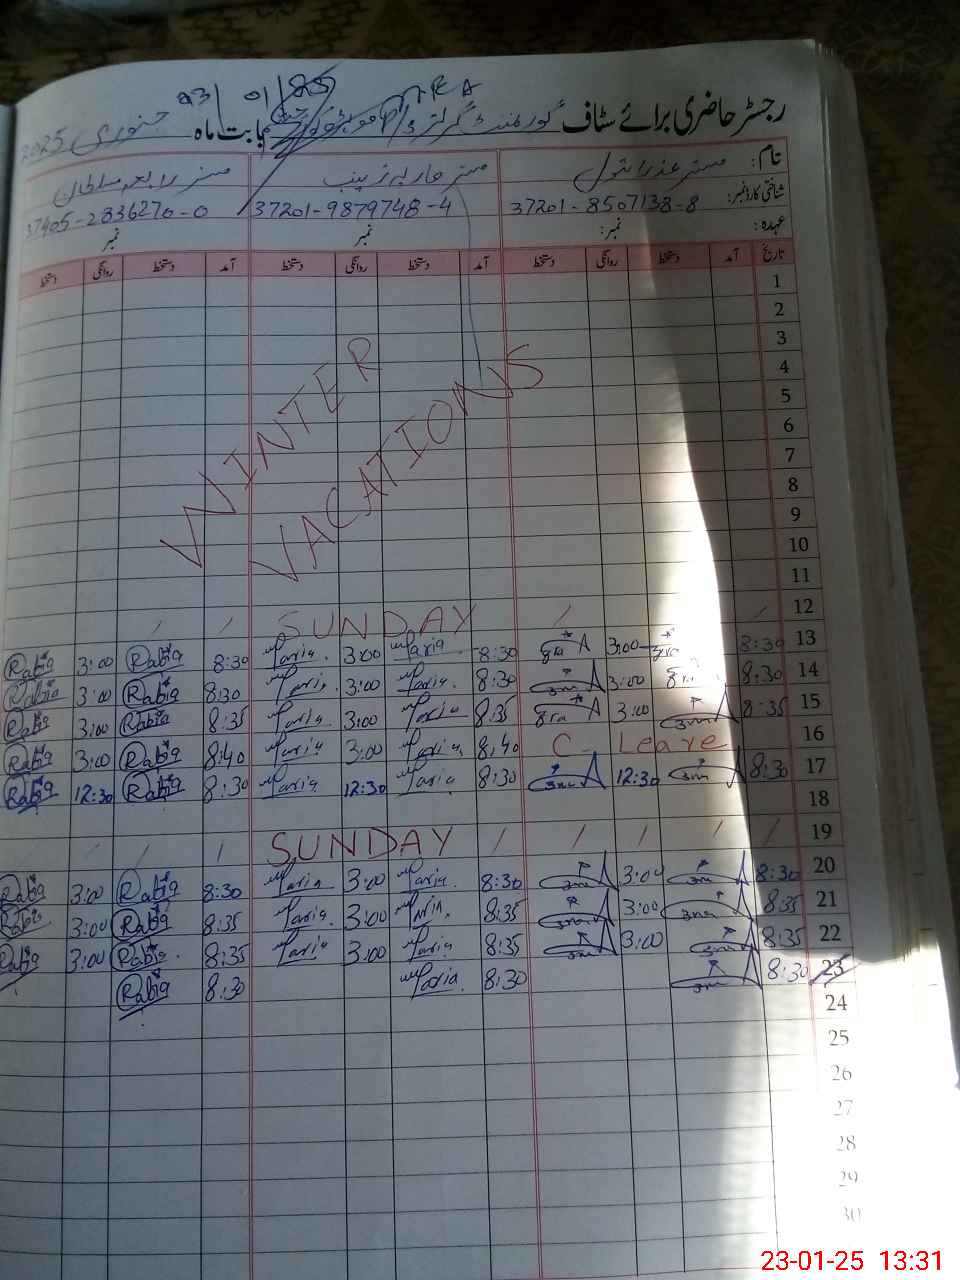 23/01/25 AEA
رجسٹر حاضری برائے سٹاف گورنمنٹ گرلز بابت ماہ جنوری 2025
نام: مسز عذرا بتول مسز ماریہ زینب مسز رابعہ سلطان
شناختی کارڈ نمبر: 37201-8507138-8 37201-9879748-4 37405-2836270-0
عہدہ: نمبر: نمبر نمبر
تاریخ آمد دستخط روانگی دستخط آمد دستخط روانگی دستخط آمد دستخط روانگی دستخط
1
2
3
4
5
6
7
8
9
10
11
WINTER
VACATIONS
12 SUNDAY
13 8:30 3:00 8:30 Maria 3:00 Maria 8:30 Rabia 3:00 Rabia
14 8:30 3:00 8:30 Maria 3:00 Maria 8:30 Rabia 3:00 Rabia
15 8:35 3:00 8:35 Maria 3:00 Maria 8:35 Rabia 3:00 Rabia
16 C-Leave 8:40 Maria 3:00 Maria 8:40 Rabia 3:00 Rabia
17 8:30 12:30 8:30 Maria 12:30 Maria 8:30 Rabia 12:30 Rabia
18
19 SUNDAY
20 8:30 3:00 8:30 Maria 3:00 Maria 8:30 Rabia 3:00 Rabia
21 8:35 3:00 8:35 Maria 3:00 Maria 8:35 Rabia 3:00 Rabia
22 8:35 3:00 8:35 Maria 3:00 Maria 8:35 Rabia 3:00 Rabia
23 8:30 8:30 Maria 8:30 Rabia
24
25
26
27
28
29
30
23-01-25 13:31